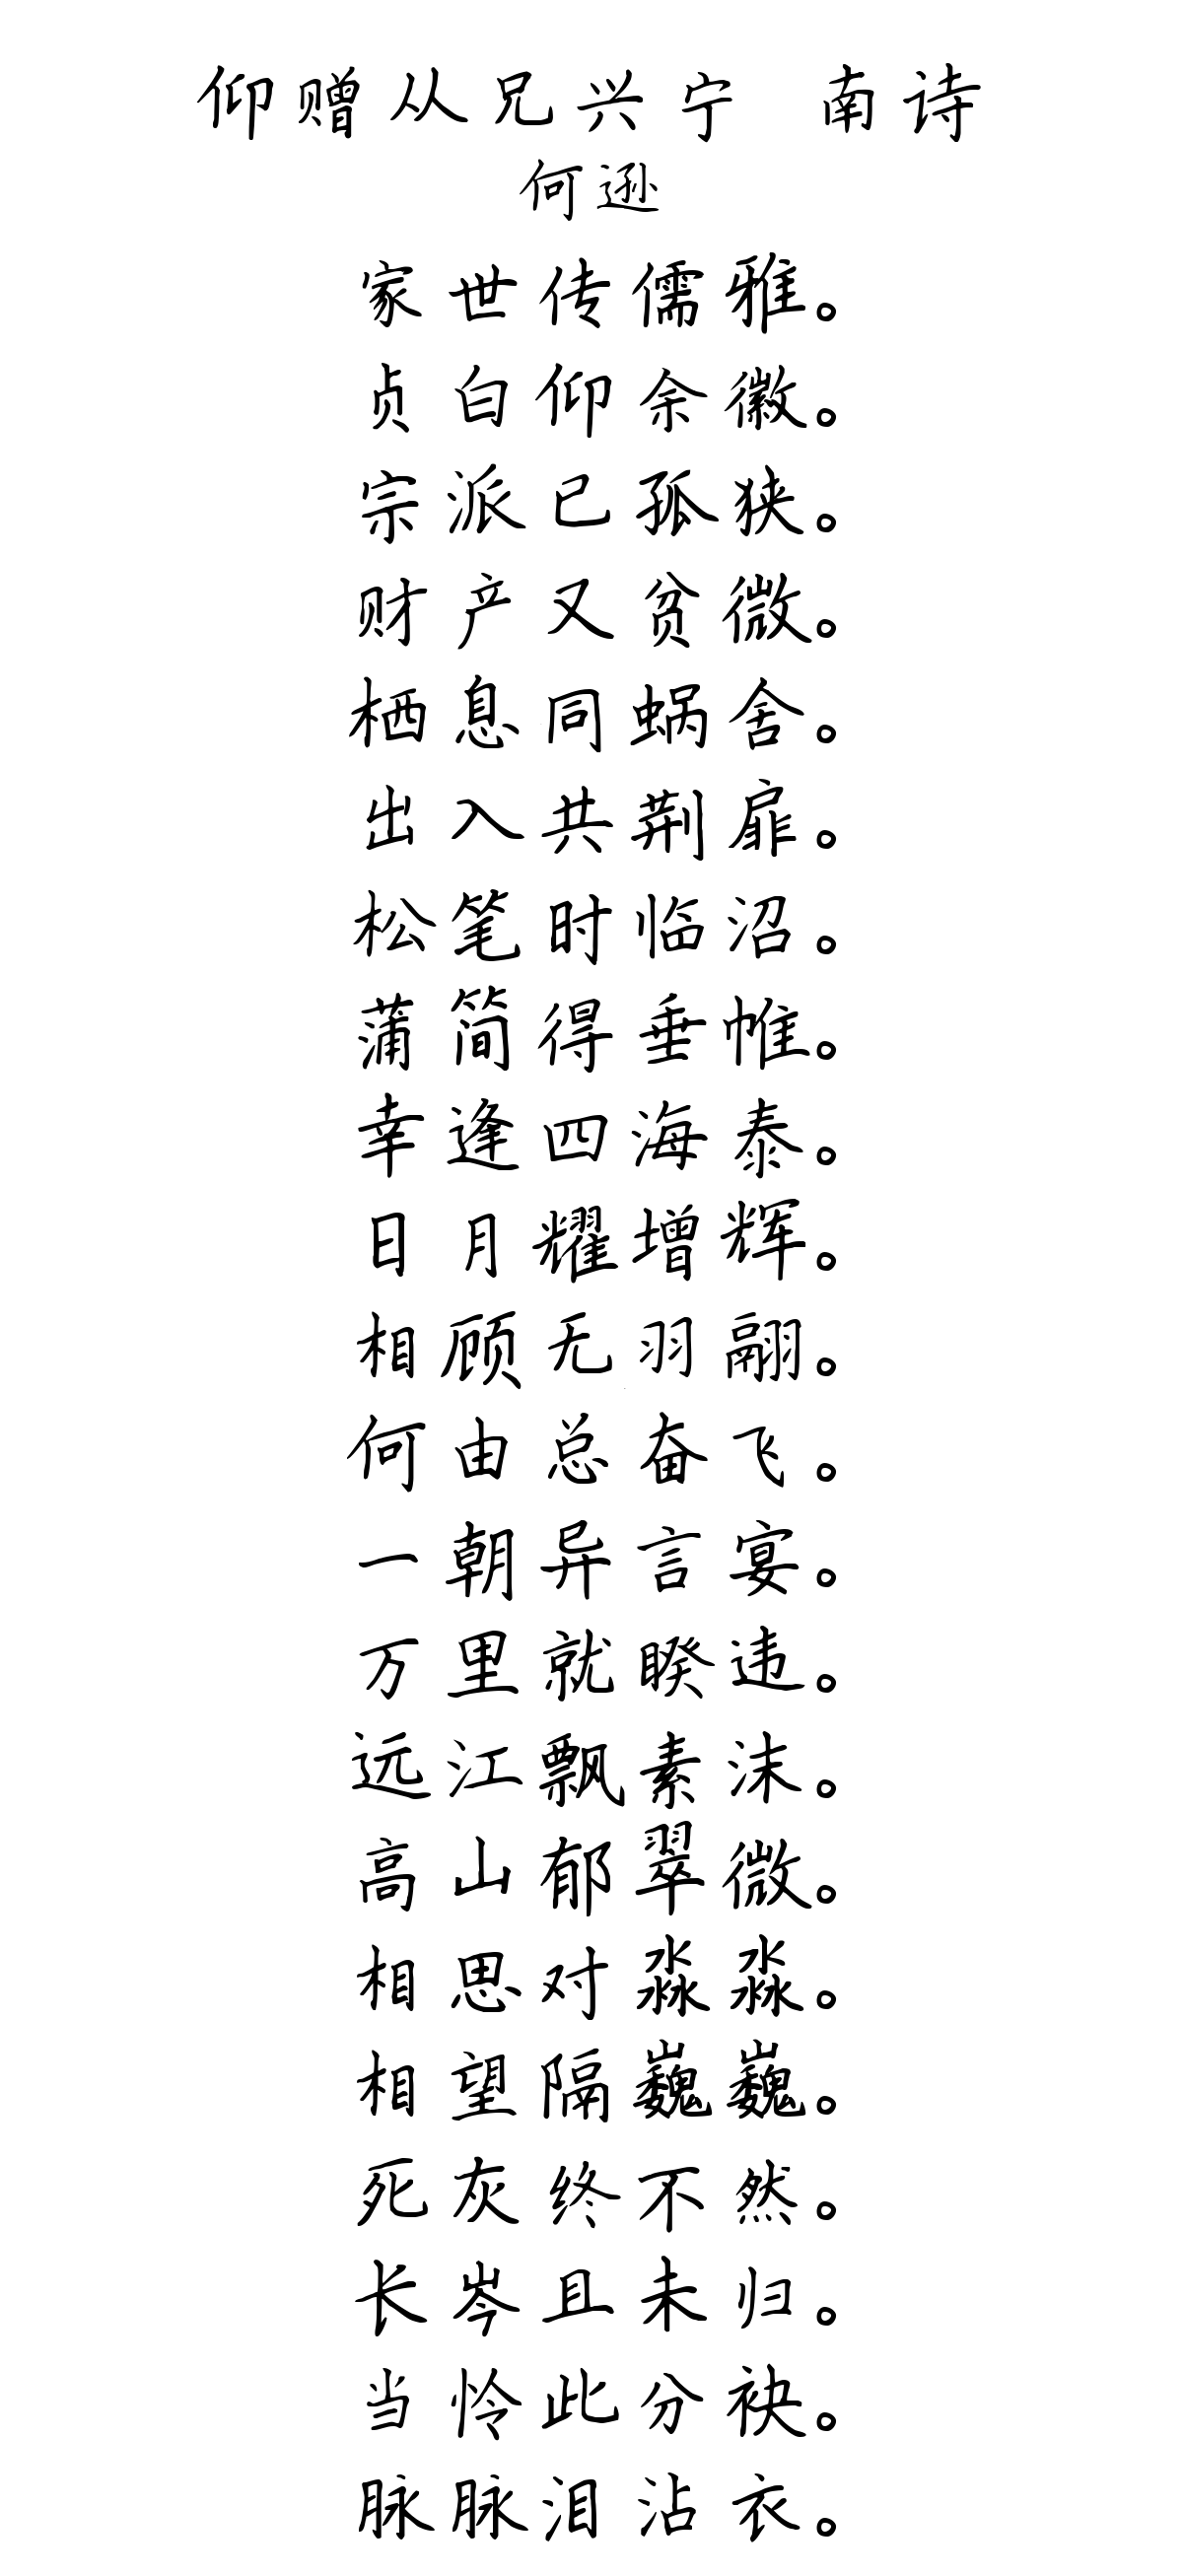 仰赠从兄兴宁 南诗
何逊
家世传儒雅。
贞白仰余徽。
宗派已孤狭。
财产又贫微。
栖息同蜗舍。
出入共荆扉。
松笔时临沼。
蒲简得垂帷。
幸逢四海泰。
日月耀增辉。
相顾无羽翮。
何由总奋飞。
一朝异言宴。
万里就睽违。
远江飘素沫。
高山郁翠微。
相思对淼淼。
相望隔巍巍。
死灰终不然。
长岑且未归。
当怜此分袂。
脉脉泪沾衣。